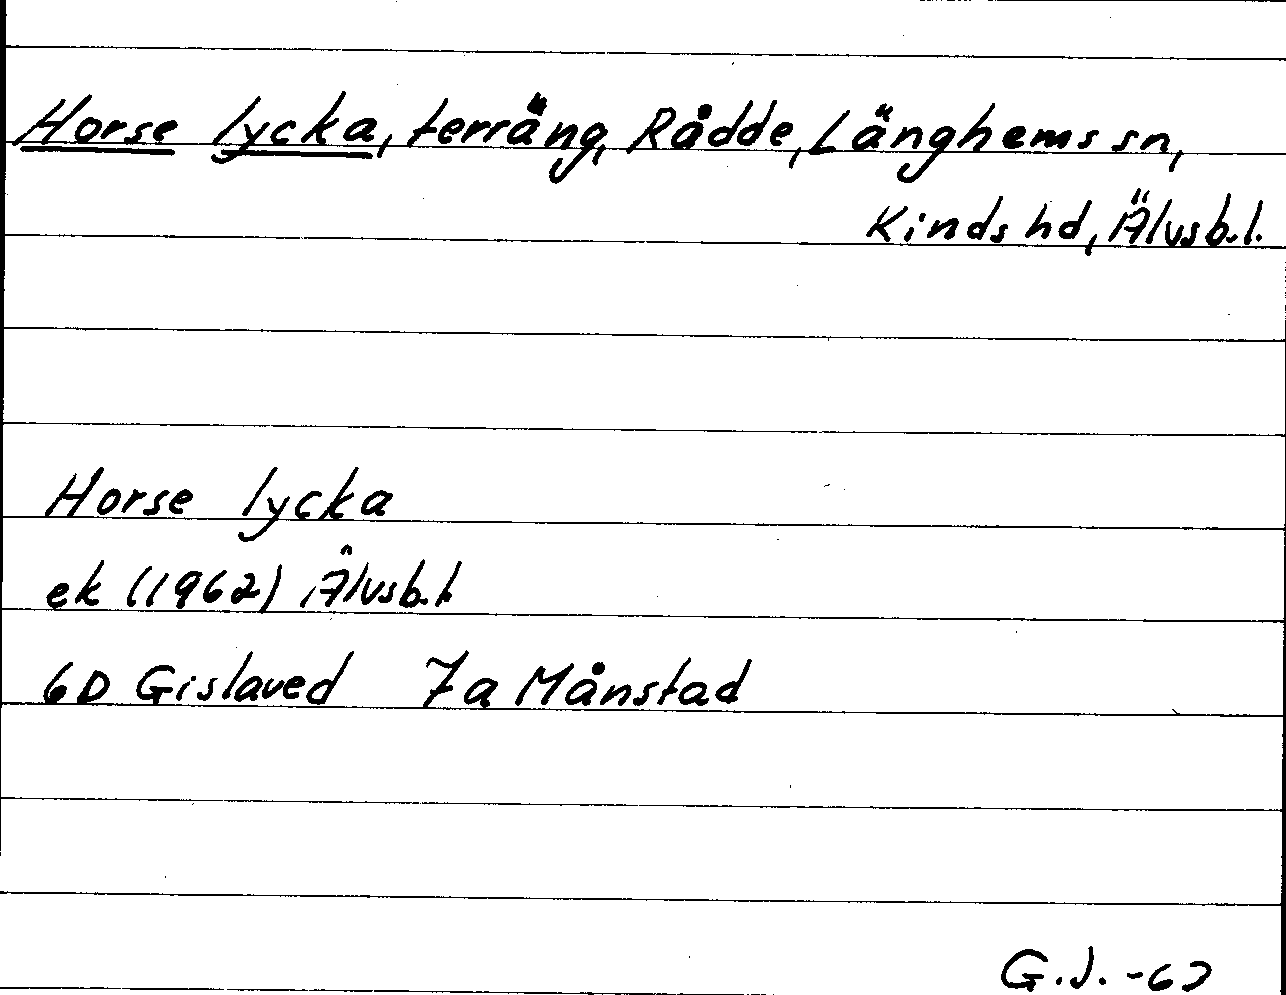 Horse lycka, terräng, Rådde, Länghems sn,
Kinds hd, Älvsb.l.
Horse lycka
ek (1962) Älvsb.l.
6D Gislaved 7a Månstad
G.J.